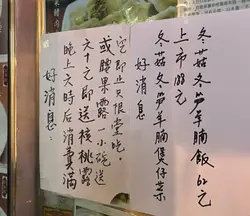 好消息：
晚上六時后消費滿
六十元即送核桃露
或腰果露一小碗送
完即止只限堂吃。
好消息
冬菇冬笋羊腩煲仔菜
上市 元
冬菇冬笋羊腩飯 62元